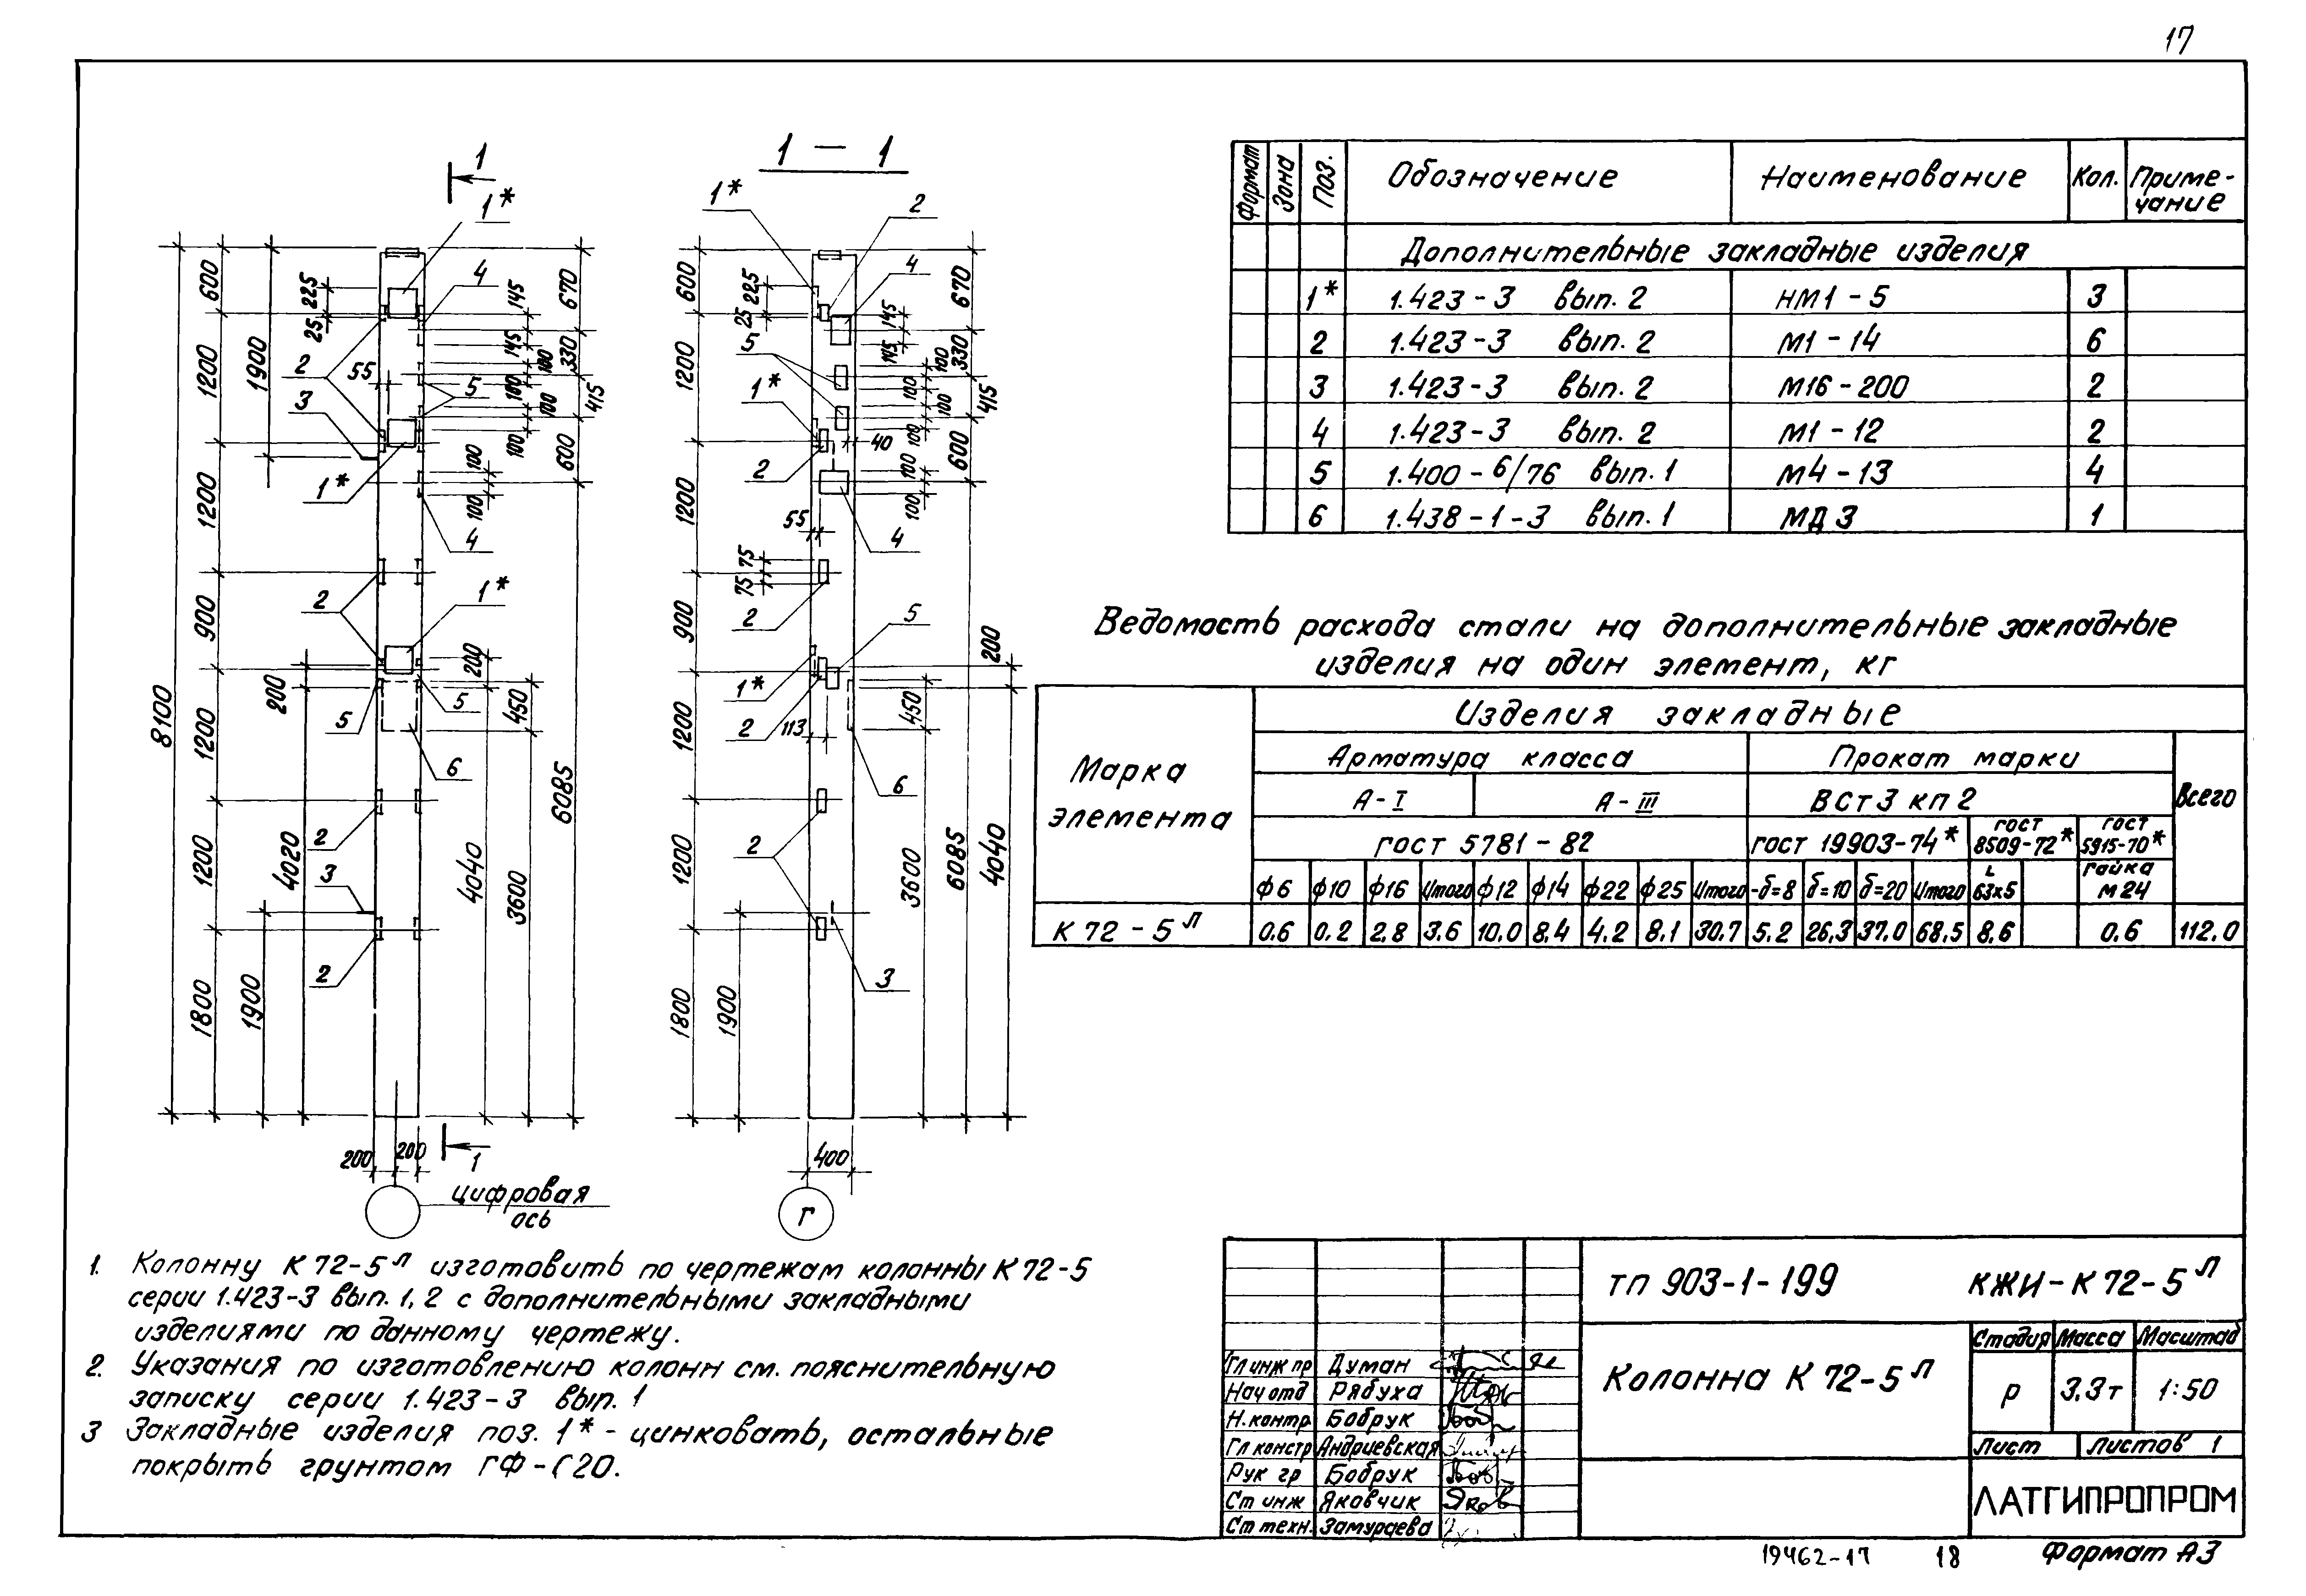 17
1
1*
4
2
3
55
5
1*
4
2
1*
5
5
6
2
3
2
600
1200
1200
900
1200
1200
1800
8100
1900
225
25
200
4020
1900
145
145
100
100
100
100
100
100
670
330
415
600
200
450
4040
3600
6085
200
200
1
цифровая
ось
1 — 1
1*
2
4
5
1*
2
4
2
5
1*
2
6
2
3
600
1200
1200
900
1200
1200
1800
1900
225
25
145
145
100
100
100
100
40
100
100
55
75
75
113
670
330
415
600
200
450
3600
6085
4040
400
Г
Формат Зона Поз. Обозначение Наименование Кол. Приме-
чание
Дополнительные закладные изделия
1* 1.423-3 вып. 2 НМ1-5 3
2 1.423-3 вып. 2 М1-14 6
3 1.423-3 вып. 2 М16-200 2
4 1.423-3 вып. 2 М1-12 2
5 1.400-6/76 вып. 1 М4-13 4
6 1.438-1-3 вып. 1 МД3 1
Ведомость расхода стали на дополнительные закладные
изделия на один элемент, кг
Марка
элемента
Изделия закладные
Арматура класса Прокат марки Всего
А-I А-III ВСт3кп2
гост 5781-82 гост 19903-74* гост 8509-72* гост 5915-70*
ф6 ф10 ф16 Итого ф12 ф14 ф22 ф25 Итого -δ=8 δ=10 δ=20 Итого L 63x5 гайка М24
К 72-5л 0.6 0.2 2.8 3.6 10.0 8.4 4.2 8.1 30.7 5.2 26.3 37.0 68.5 8.6 0.6 112.0
1. Колонну К 72-5л изготовить по чертежам колонны К 72-5
серии 1.423-3 вып. 1, 2 с дополнительными закладными
изделиями по данному чертежу.
2. Указания по изготовлению колонн см. пояснительную
записку серии 1.423-3 вып. 1
3 Закладные изделия поз. 1* - цинковать, остальные
покрыть грунтом ГФ-020.
тп 903-1-199 КЖИ-К 72-5л
Колонна К 72-5л
Стадия Масса Масштаб
р 3.3т 1:50
Лист Листов 1
ЛАТГИПРОПРОМ
Гл инж пр Думан
Нач отд Рябуха
Н. контр Бобрук
Гл констр Андриевская
Рук гр Бобрук
Ст инж Яковчик
Ст техн. Замураева
19462-17 18 Формат А3